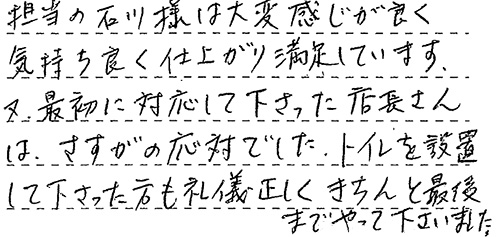 担当の石川様は大変感じが良く
気持ち良く仕上がり満足しています.
又.最初に対応して下さった店長さん
は.さすがの応対でした.トイレを設置
して下さった方も礼儀正しくきちんと最後
までやって下さいました。